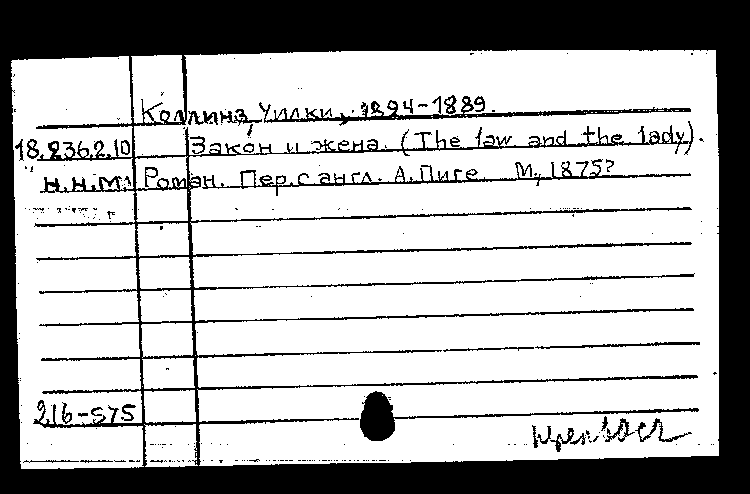 Коллинз, Уилки, 1824-1889.
18.236.2.10 Закон и жена. (The law and the lady).
н.н.м. Роман. Пер. с англ. А. Пиге М., 1875?
216-575